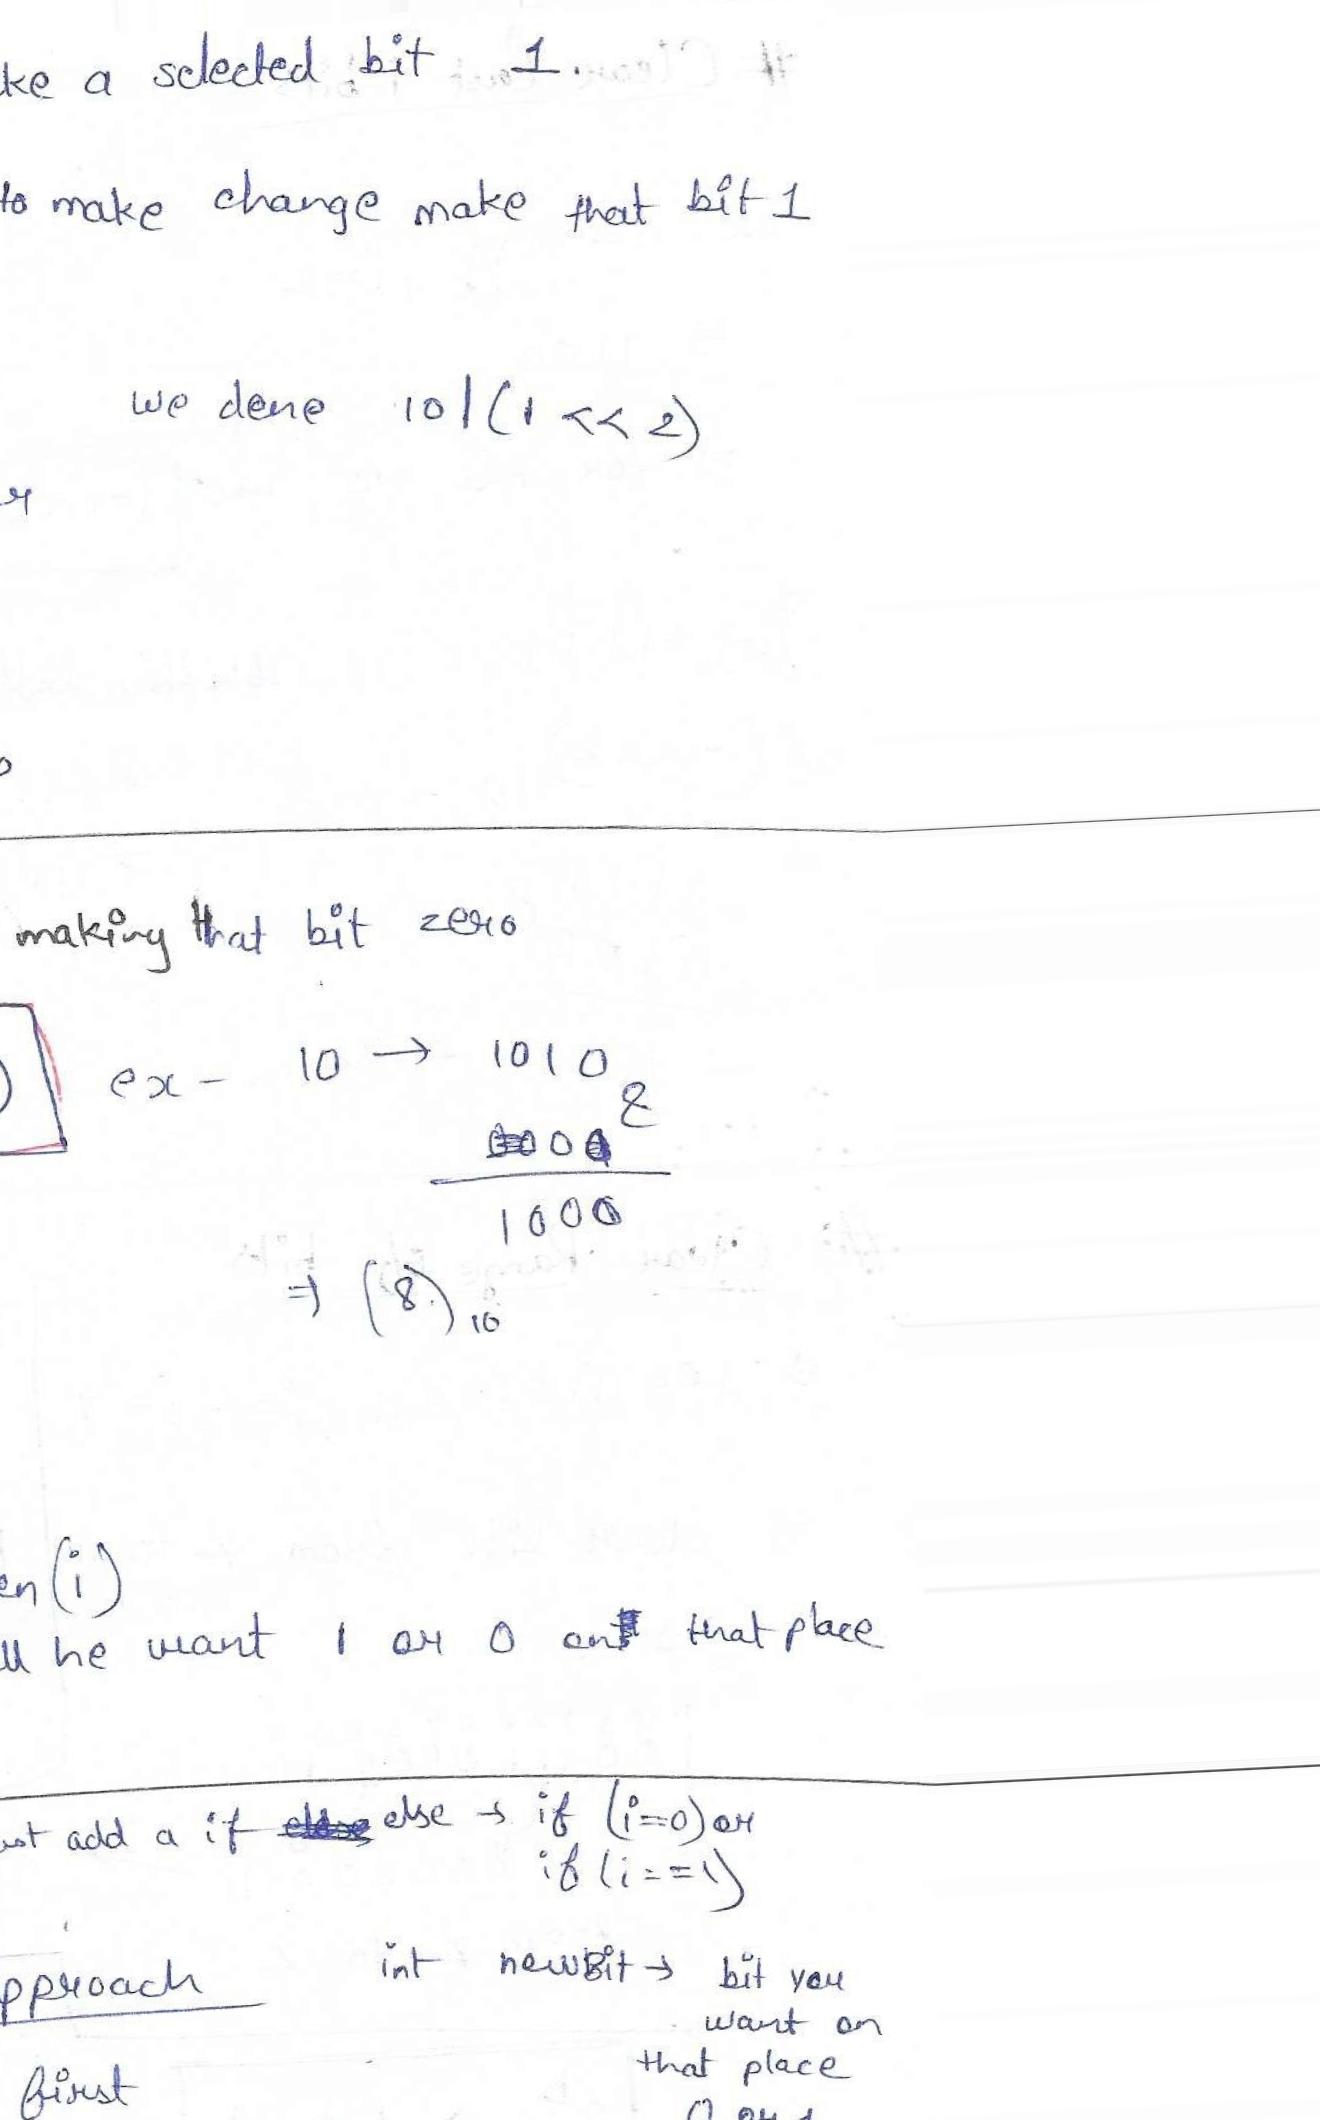 ke a selected bit 1.
to make change make that bit 1
we done 10|(1 << 2)
r
making that bit zero
) ex - 10 → 1010
&
1000
⇒ (8)10
en(i)
ll he want 1 or 0 on that place
ust add a if else → if (i=0) or
if (i==1)
pproach int newBit → bit you
want on
that place
first
0 or 1